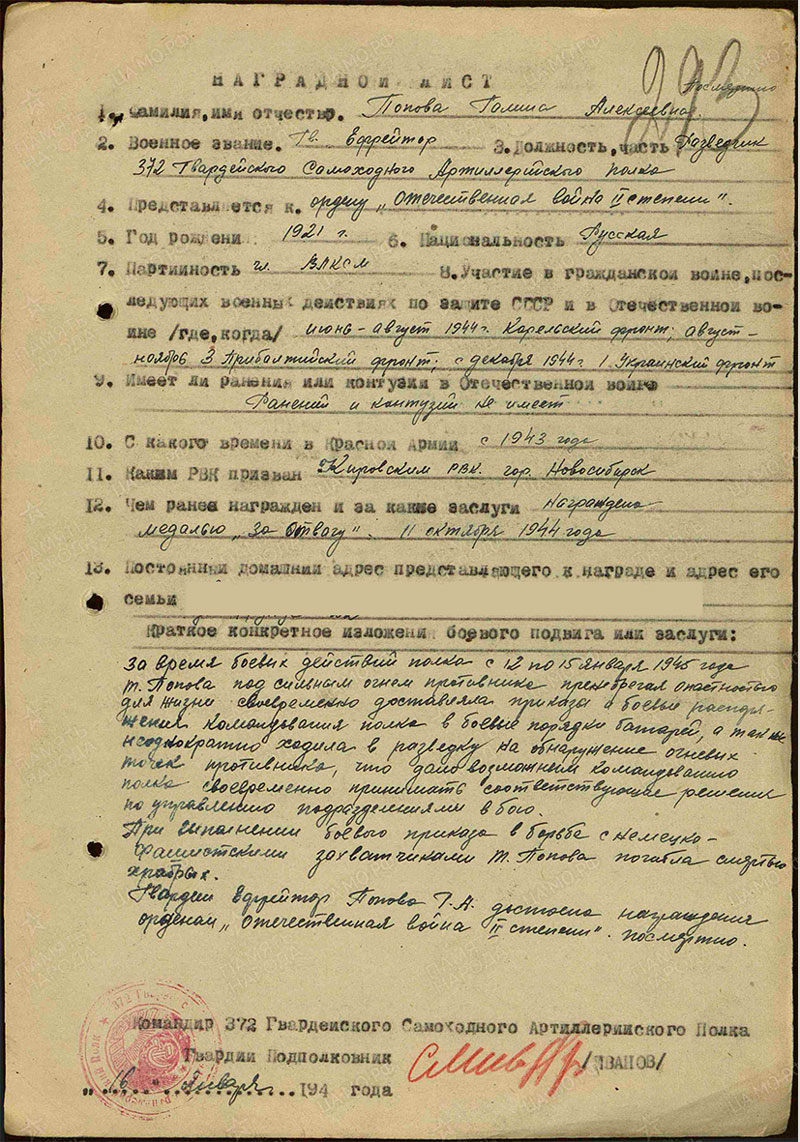 НАГРАДНОЙ ЛИСТ
Посмертно
1. Фамилия, имя отчество. Попова Галина Алексеевна.
2. Военное звание. Гв. Ефрейтор 3. Должность, часть Разведчик
372 Гвардейского Самоходного Артиллерийского полка
4. Представляется к. ордену „Отечественная война II степени".
5. Год рождени 1921 г. 6. Национальность Русская
7. Партийность чл. ВЛКСМ 8. Участие в гражданской войне, пос-
ледующих военных действиях по защите СССР и в Отечественной во-
ине /где, когда/ июнь-август 1944 г. Карельский фронт; август-
ноябрь 3 Прибалтийский фронт; с декабря 1944 г. 1 Украинский фронт
9. Имеет ли ранения или контузии в Отечественной войне
Ранений и контузий не имеет
10. С какого времени в Красной Армии с 1943 года
11. Каким РВК призван Кировским РВК. гор. Новосибирск
12. Чем ранее награжден и за какие заслуги награждена
медалью „За Отвагу". 11 октября 1944 года
13. Постоянный домашний адрес представляющего к награде и адрес его
семьи
Краткое конкретное изложени боевого подвига или заслуги:
За время боевых действий полка с 12 по 15 января 1945 года
т. Попова под сильным огнем противника пренебрегая опастностью
для жизни своевременно доставляла приказы и боевые распоря-
жения командования полка в боевые порядки батарей, а так же
неоднократно ходила в разведку на обнаружение огневых
точек противника, что дало возможным командованию
полка своевременно принимать соответствующие решения
по управлению подразделениями в бою.
При выполнении боевого приказа в борьбе с немецко-
фашистскими захватчиками т. Попова погибла смертью
храбрых.
Гвардии Ефрейтор Попова Г.А. достойна награждения
орденом „Отечественная война II степени". посмертно.
Командир 372 Гвардейского Самоходного Артиллерийского Полка
Гвардии Подполковник /ИВАНОВ/
„16" января 194 года